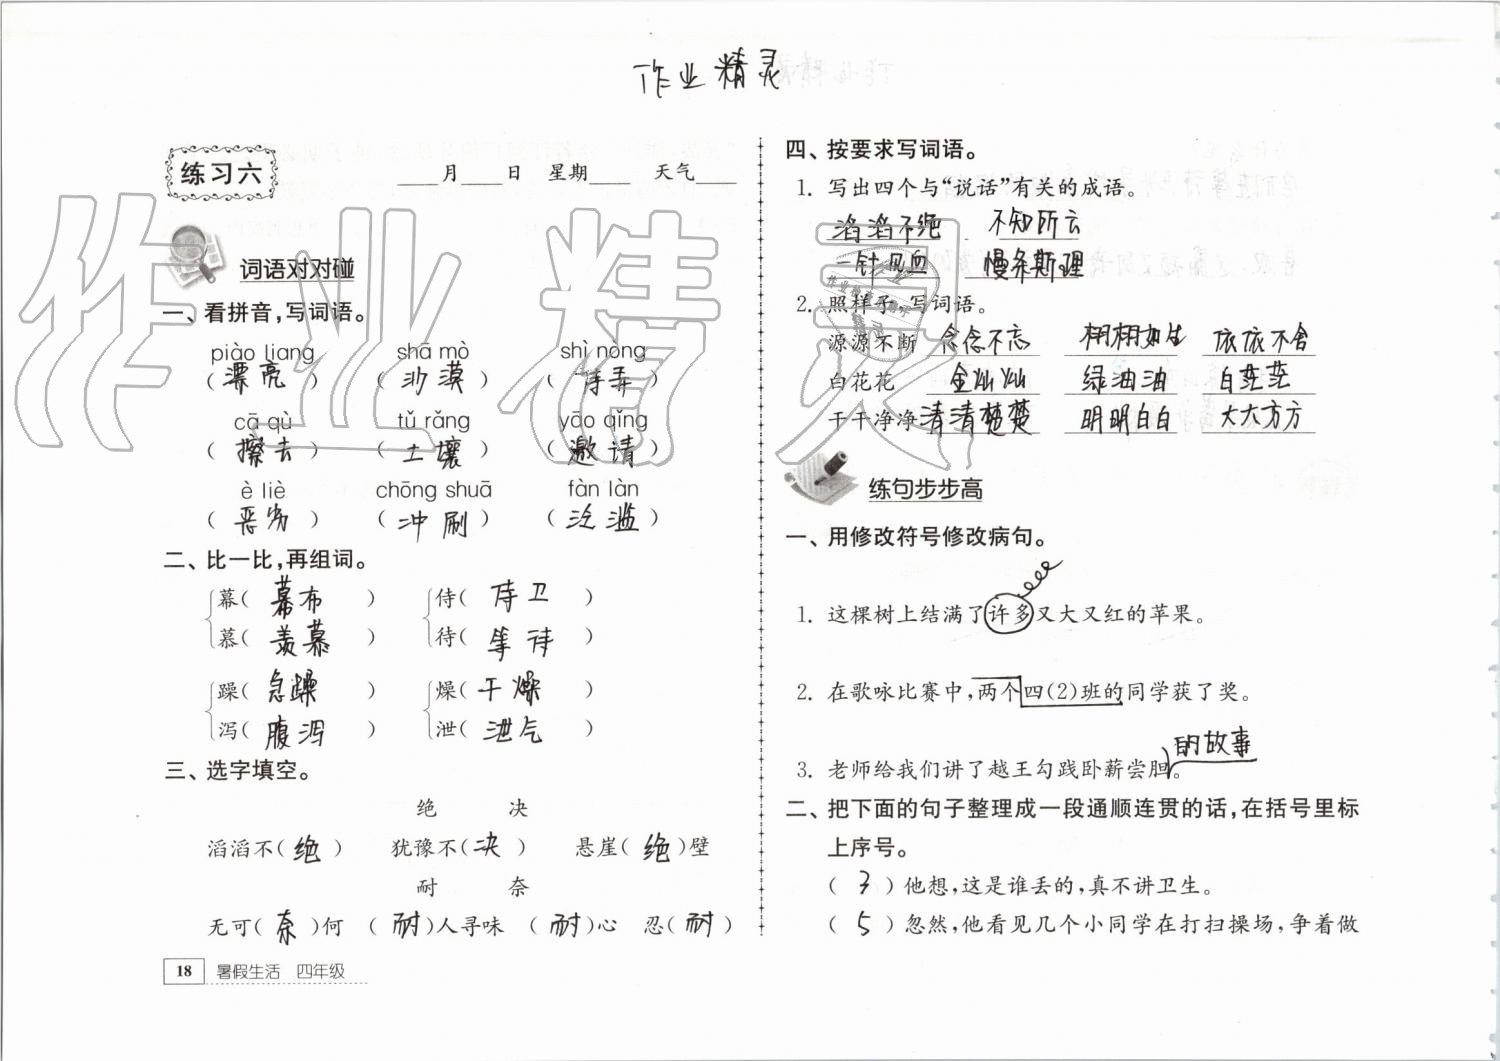 作业精灵
练习六
月 日 星期 天气
词语对对碰
一、看拼音,写词语。
piào liang shā mò shì nòng
(漂亮) (沙漠) (侍弄)
cā qù tǔ rǎng yāo qǐng
(擦去) (土壤) (邀请)
è liè chōng shuā fàn làn
(恶劣) (冲刷) (泛滥)
二、比一比,再组词。
幕(幕布) 侍(侍卫)
慕(羡慕) 待(等待)
躁(急躁) 燥(干燥)
泻(腹泻) 泄(泄气)
三、选字填空。
绝 决
滔滔不(绝) 犹豫不(决) 悬崖(绝)壁
耐 奈
无可(奈)何 (耐)人寻味 (耐)心 忍(耐)
18 暑假生活 四年级
四、按要求写词语。
1. 写出四个与“说话”有关的成语。
滔滔不绝 不知所云
一针见血 慢条斯理
2. 照样子,写词语。
源源不断 念念不忘 栩栩如生 依依不舍
白花花 金灿灿 绿油油 白茫茫
干干净净 清清楚楚 明明白白 大大方方
练句步步高
一、用修改符号修改病句。
1. 这棵树上结满了许多又大又红的苹果。
2. 在歌咏比赛中,两个四(2)班的同学获了奖。
的故事
3. 老师给我们讲了越王勾践卧薪尝胆。
二、把下面的句子整理成一段通顺连贯的话,在括号里标
上序号。
(3)他想,这是谁丢的,真不讲卫生。
(5)忽然,他看见几个小同学在打扫操场,争着做
作业精灵